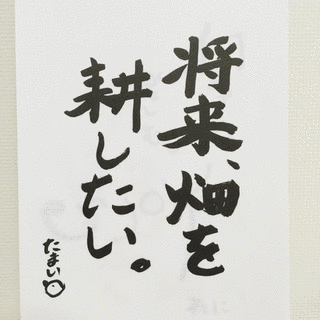 将来、畑を
耕したい。
たまい